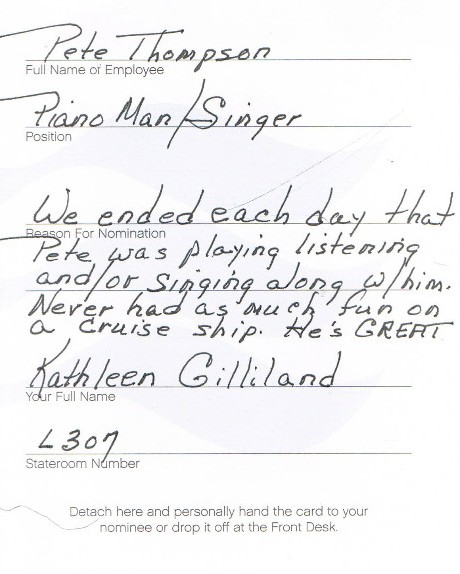 Pete Thompson
Full Name of Employee
Piano Man/Singer
Position
We ended each day that
Reason For Nomination
Pete was playing listening
and/or singing along w/him.
Never had as much fun on
a cruise ship. He's GREAT
Kathleen Gilliland
Your Full Name
L307
Stateroom Number
Detach here and personally hand the card to your
nominee or drop it off at the Front Desk.